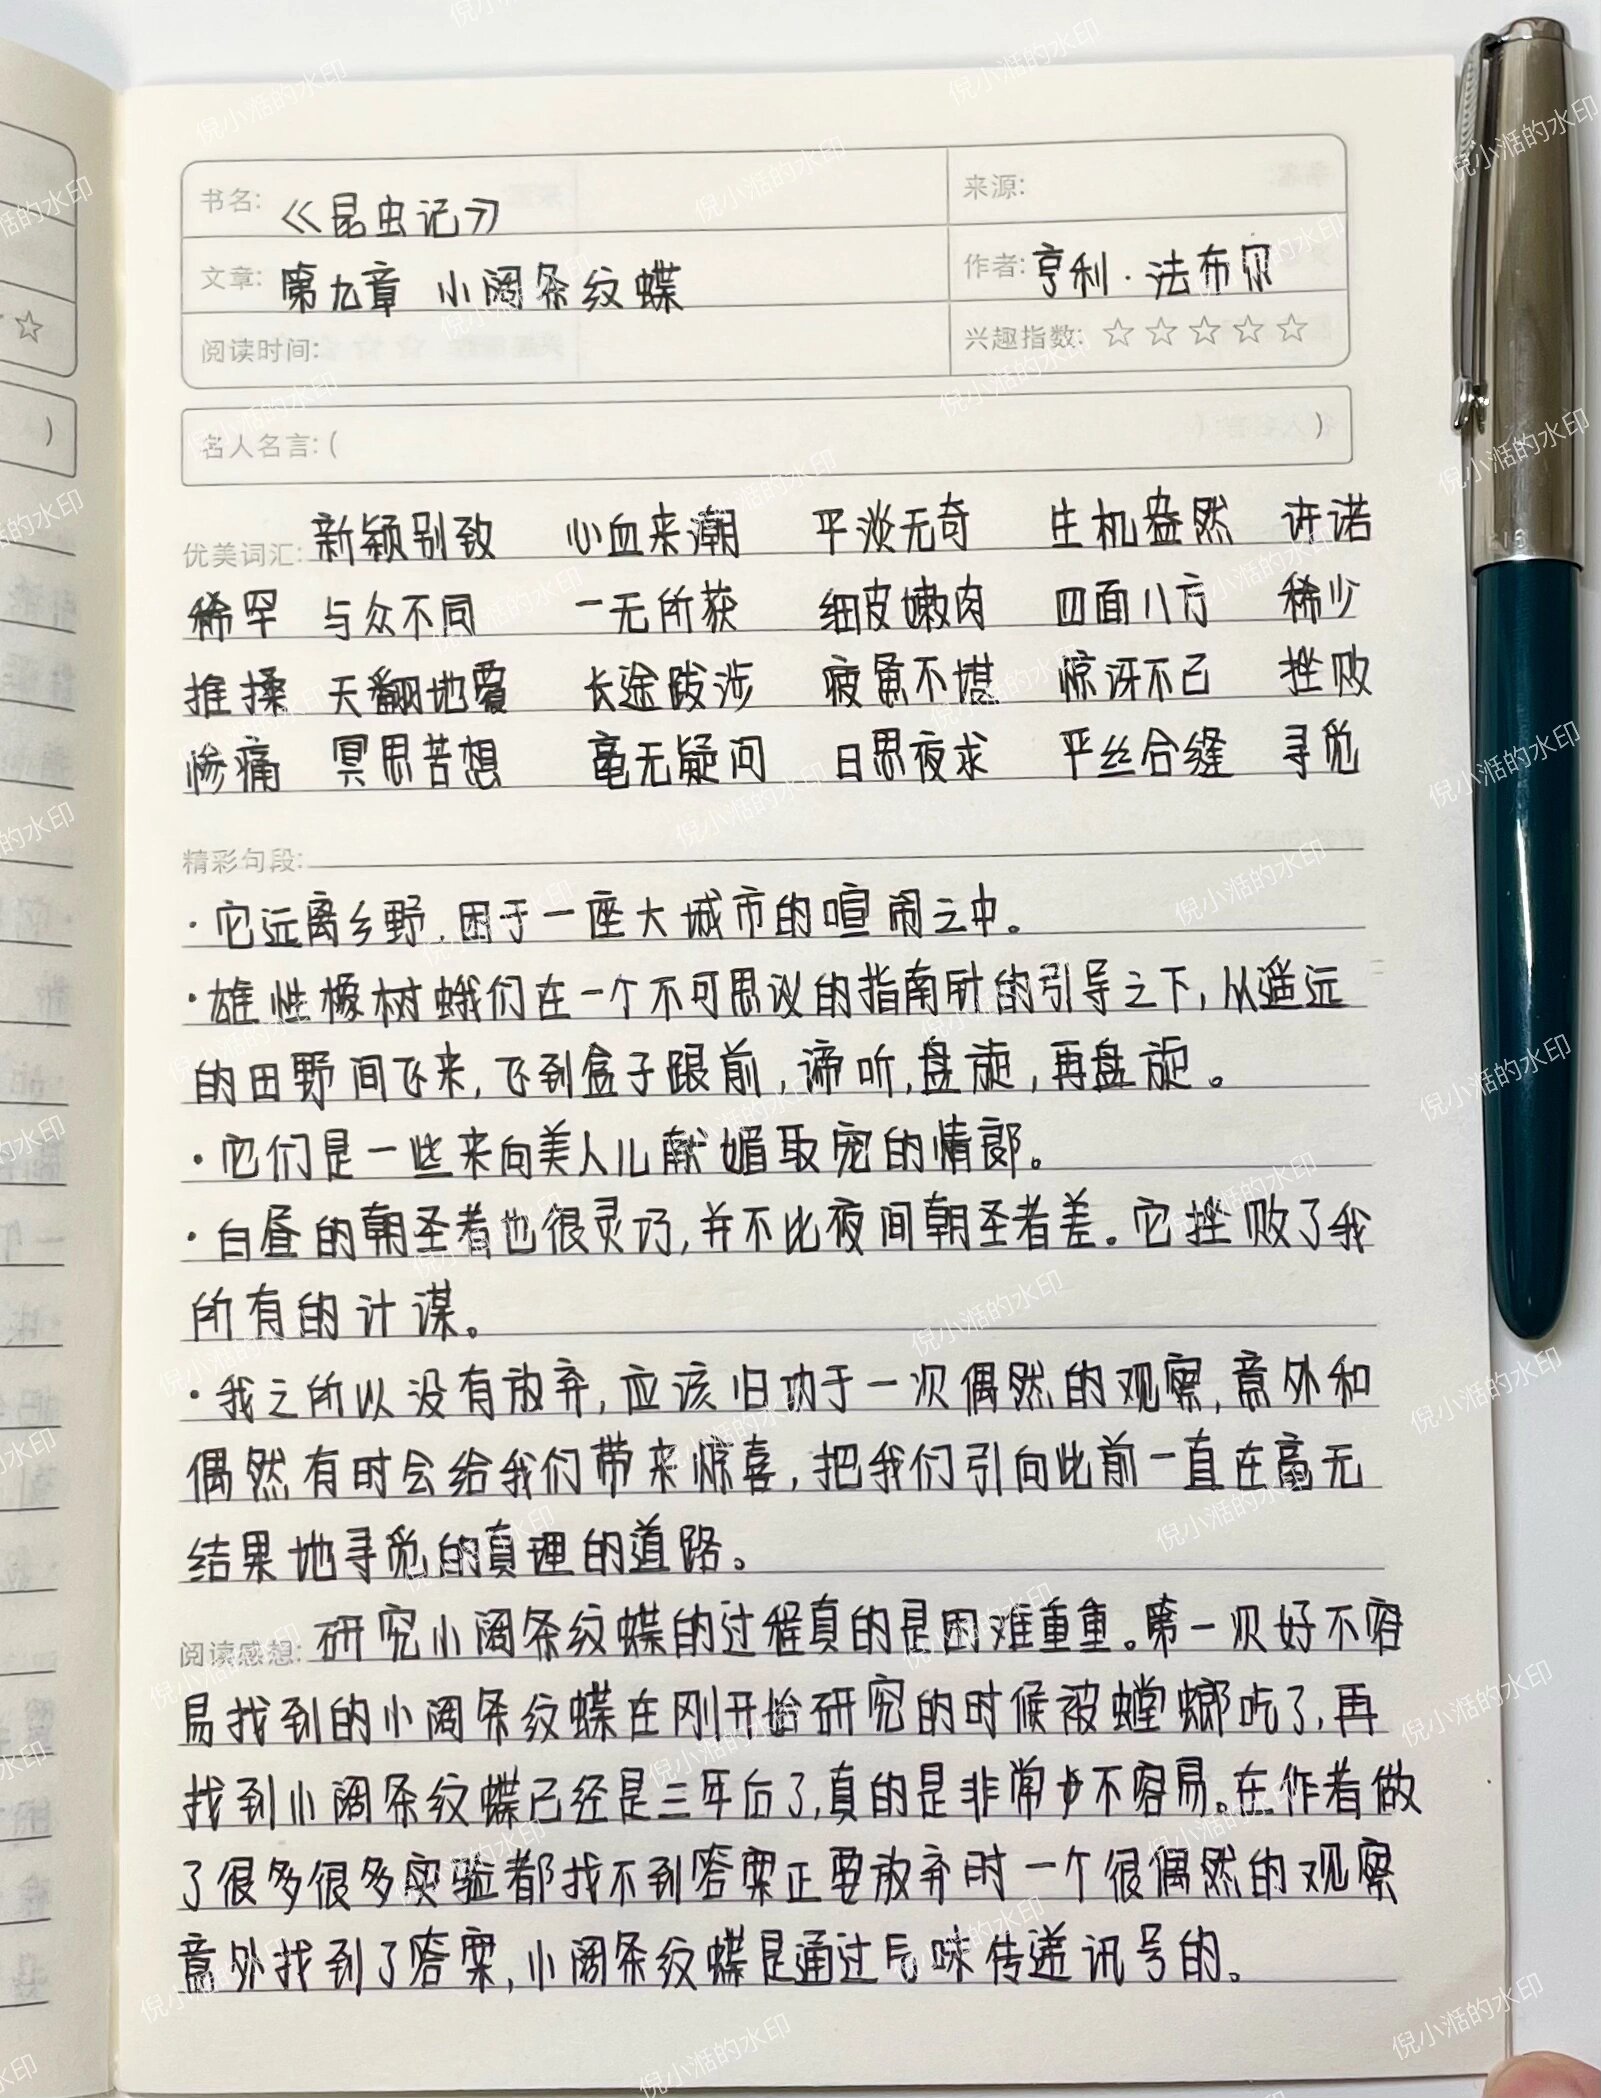 书名: 《昆虫记》 来源:
文章: 第九章 小阔条纹蝶 作者: 亨利·法布尔
阅读时间: 兴趣指数: ☆☆☆☆☆
名人名言:( )
优美词汇: 新颖别致 心血来潮 平淡无奇 生机盎然 许诺
稀罕 与众不同 一无所获 细皮嫩肉 四面八方 稀少
推搡 天翻地覆 长途跋涉 疲惫不堪 惊讶不已 挫败
惨痛 冥思苦想 毫无疑问 日思夜求 严丝合缝 寻觅
精彩句段:
·它远离乡野,困于一座大城市的喧闹之中。
·雄性橡树蛾们在一个不可思议的指南针的引导之下,从遥远
的田野间飞来,飞到盒子跟前,谛听,盘旋,再盘旋。
·它们是一些来向美人儿献媚取宠的情郎。
·白昼的朝圣者也很灵巧,并不比夜间朝圣者差。它挫败了我
所有的计谋。
·我之所以没有放弃,应该归功于一次偶然的观察,意外和
偶然有时会给我们带来惊喜,把我们引向此前一直在毫无
结果地寻觅的真理的道路。
阅读感想: 研究小阔条纹蝶的过程真的是困难重重。第一次好不容
易找到的小阔条纹蝶在刚开始研究的时候被螳螂吃了,再
找到小阔条纹蝶已经是三年后了,真的是非常不容易。在作者做
了很多很多实验都找不到答案正要放弃时一个很偶然的观察
意外找到了答案,小阔条纹蝶是通过气味传递讯号的。
倪小湉的水印